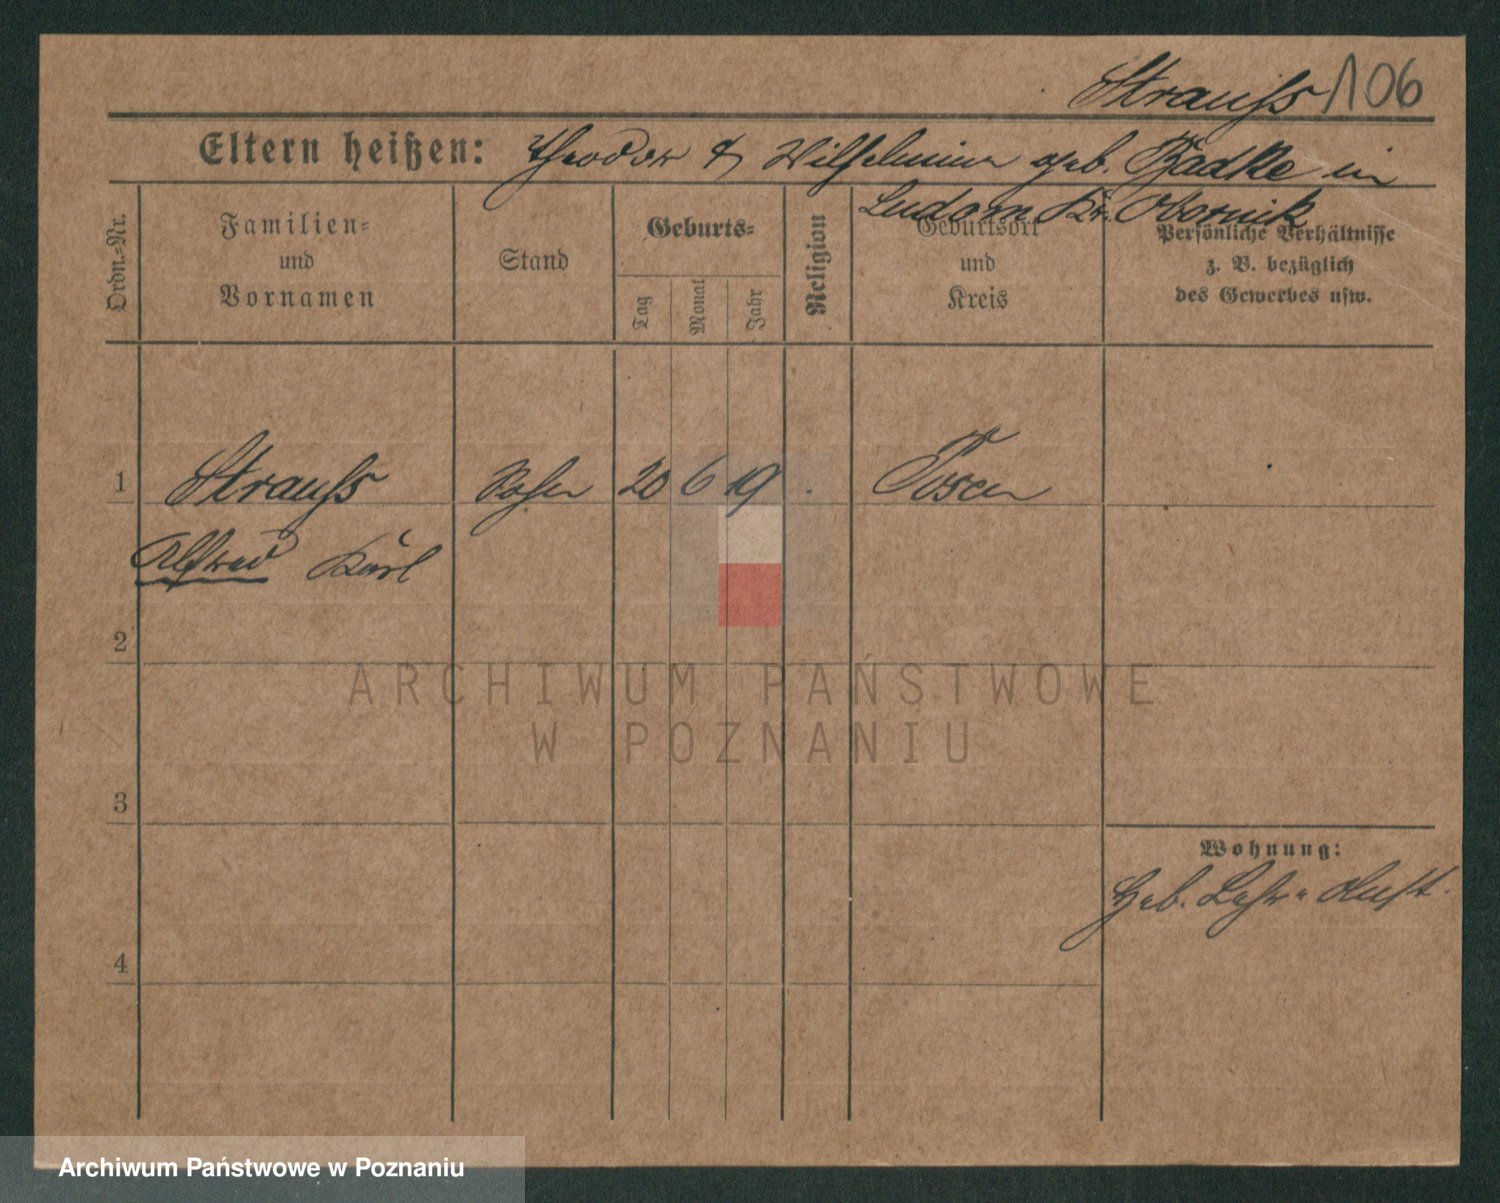 Strauss 106
Eltern heißen: Theodor & Wilhelmine geb. Radke in
Ludom Kr. Obornik
Ordn.-Nr.
Familien-
und
Vornamen
Stand
Geburts-
Tag
Monat
Jahr
Religion
Geburtsort
und
Kreis
Persönliche Verhältnisse
z. B. bezüglich
des Gewerbes usw.
1 Strauss Sohn 20 6 19 . Posen
Alfred Karl
2
ARCHIWUM PAŃSTWOWE
W POZNANIU
3
Wohnung:
Geb. Lehr-Anst.
4
Archiwum Państwowe w Poznaniu